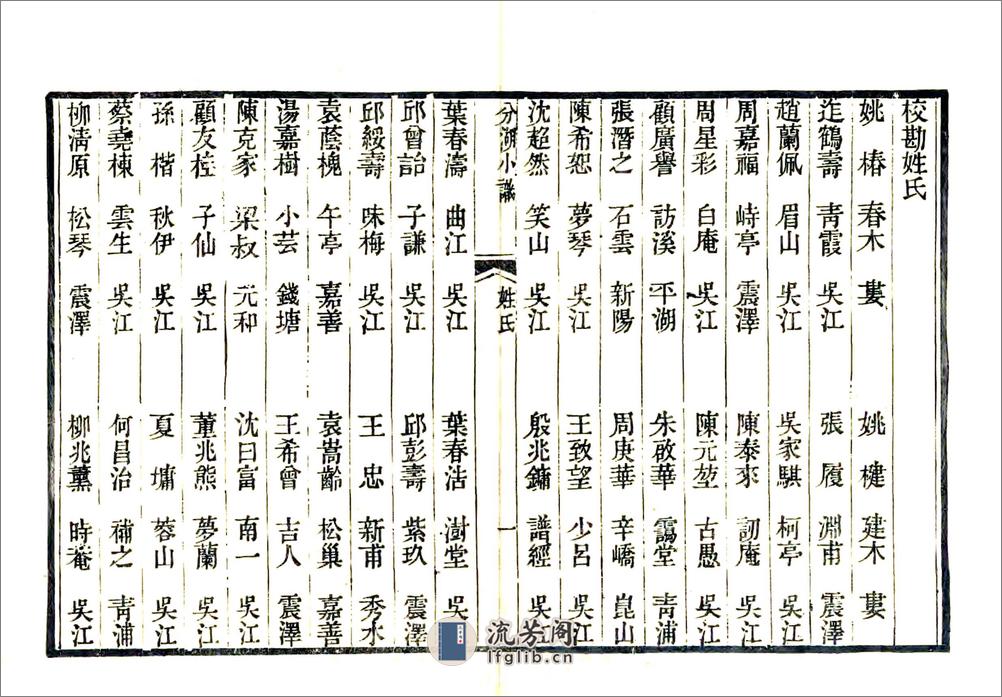 校勘姓氏
姚椿 春木 婁 姚楗 建木 婁
迮鶴壽 青霞 吳江 張履 淵甫 震澤
趙蘭佩 眉山 吳江 吳家騏 柯亭 吳江
周嘉福 峙亭 震澤 陳泰來 訒庵 吳江
周星彩 白庵 吳江 陳元堃 古愚 吳江
顧廣譽 訪溪 平湖 朱啟華 靄堂 青浦
張潛之 石雲 新陽 周庚華 辛嶠 崑山
陳希恕 夢琴 吳江 王致望 少呂 吳江
沈超然 笑山 吳江 殷兆鏞 譜經 吳江
分湖小識 姓氏 一
葉春濤 曲江 吳江 葉春浩 澍堂 吳
邱曾詒 子謙 吳江 邱彭壽 紫玖 震澤
邱綏壽 味梅 吳江 王忠 新甫 秀水
袁蔭槐 午亭 嘉善 袁嵩齡 松巢 嘉善
湯嘉樹 小芸 錢塘 王希曾 吉人 震澤
陳克家 梁叔 元和 沈曰富 南一 吳江
顧友桂 子仙 吳江 董兆熊 夢蘭 吳江
孫楷 秋伊 吳江 夏墉 蓉山 吳江
蔡堯棟 雲生 吳江 何昌治 補之 青浦
柳清原 松琴 震澤 柳兆薰 時菴 吳江
流芳閣
lfglib.cn